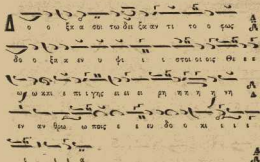 Δ ο ο ξ α σοι τω δει ξ αν τι το ο φως
δο ο ξ α εν υ ψι ι ι στοι οι οις Θε ε
ω ω και ε πι γης ει ει ρη η η η νη
εν αν θρω ω ποις ε ευ δο κι ι ι
ι ι ι α